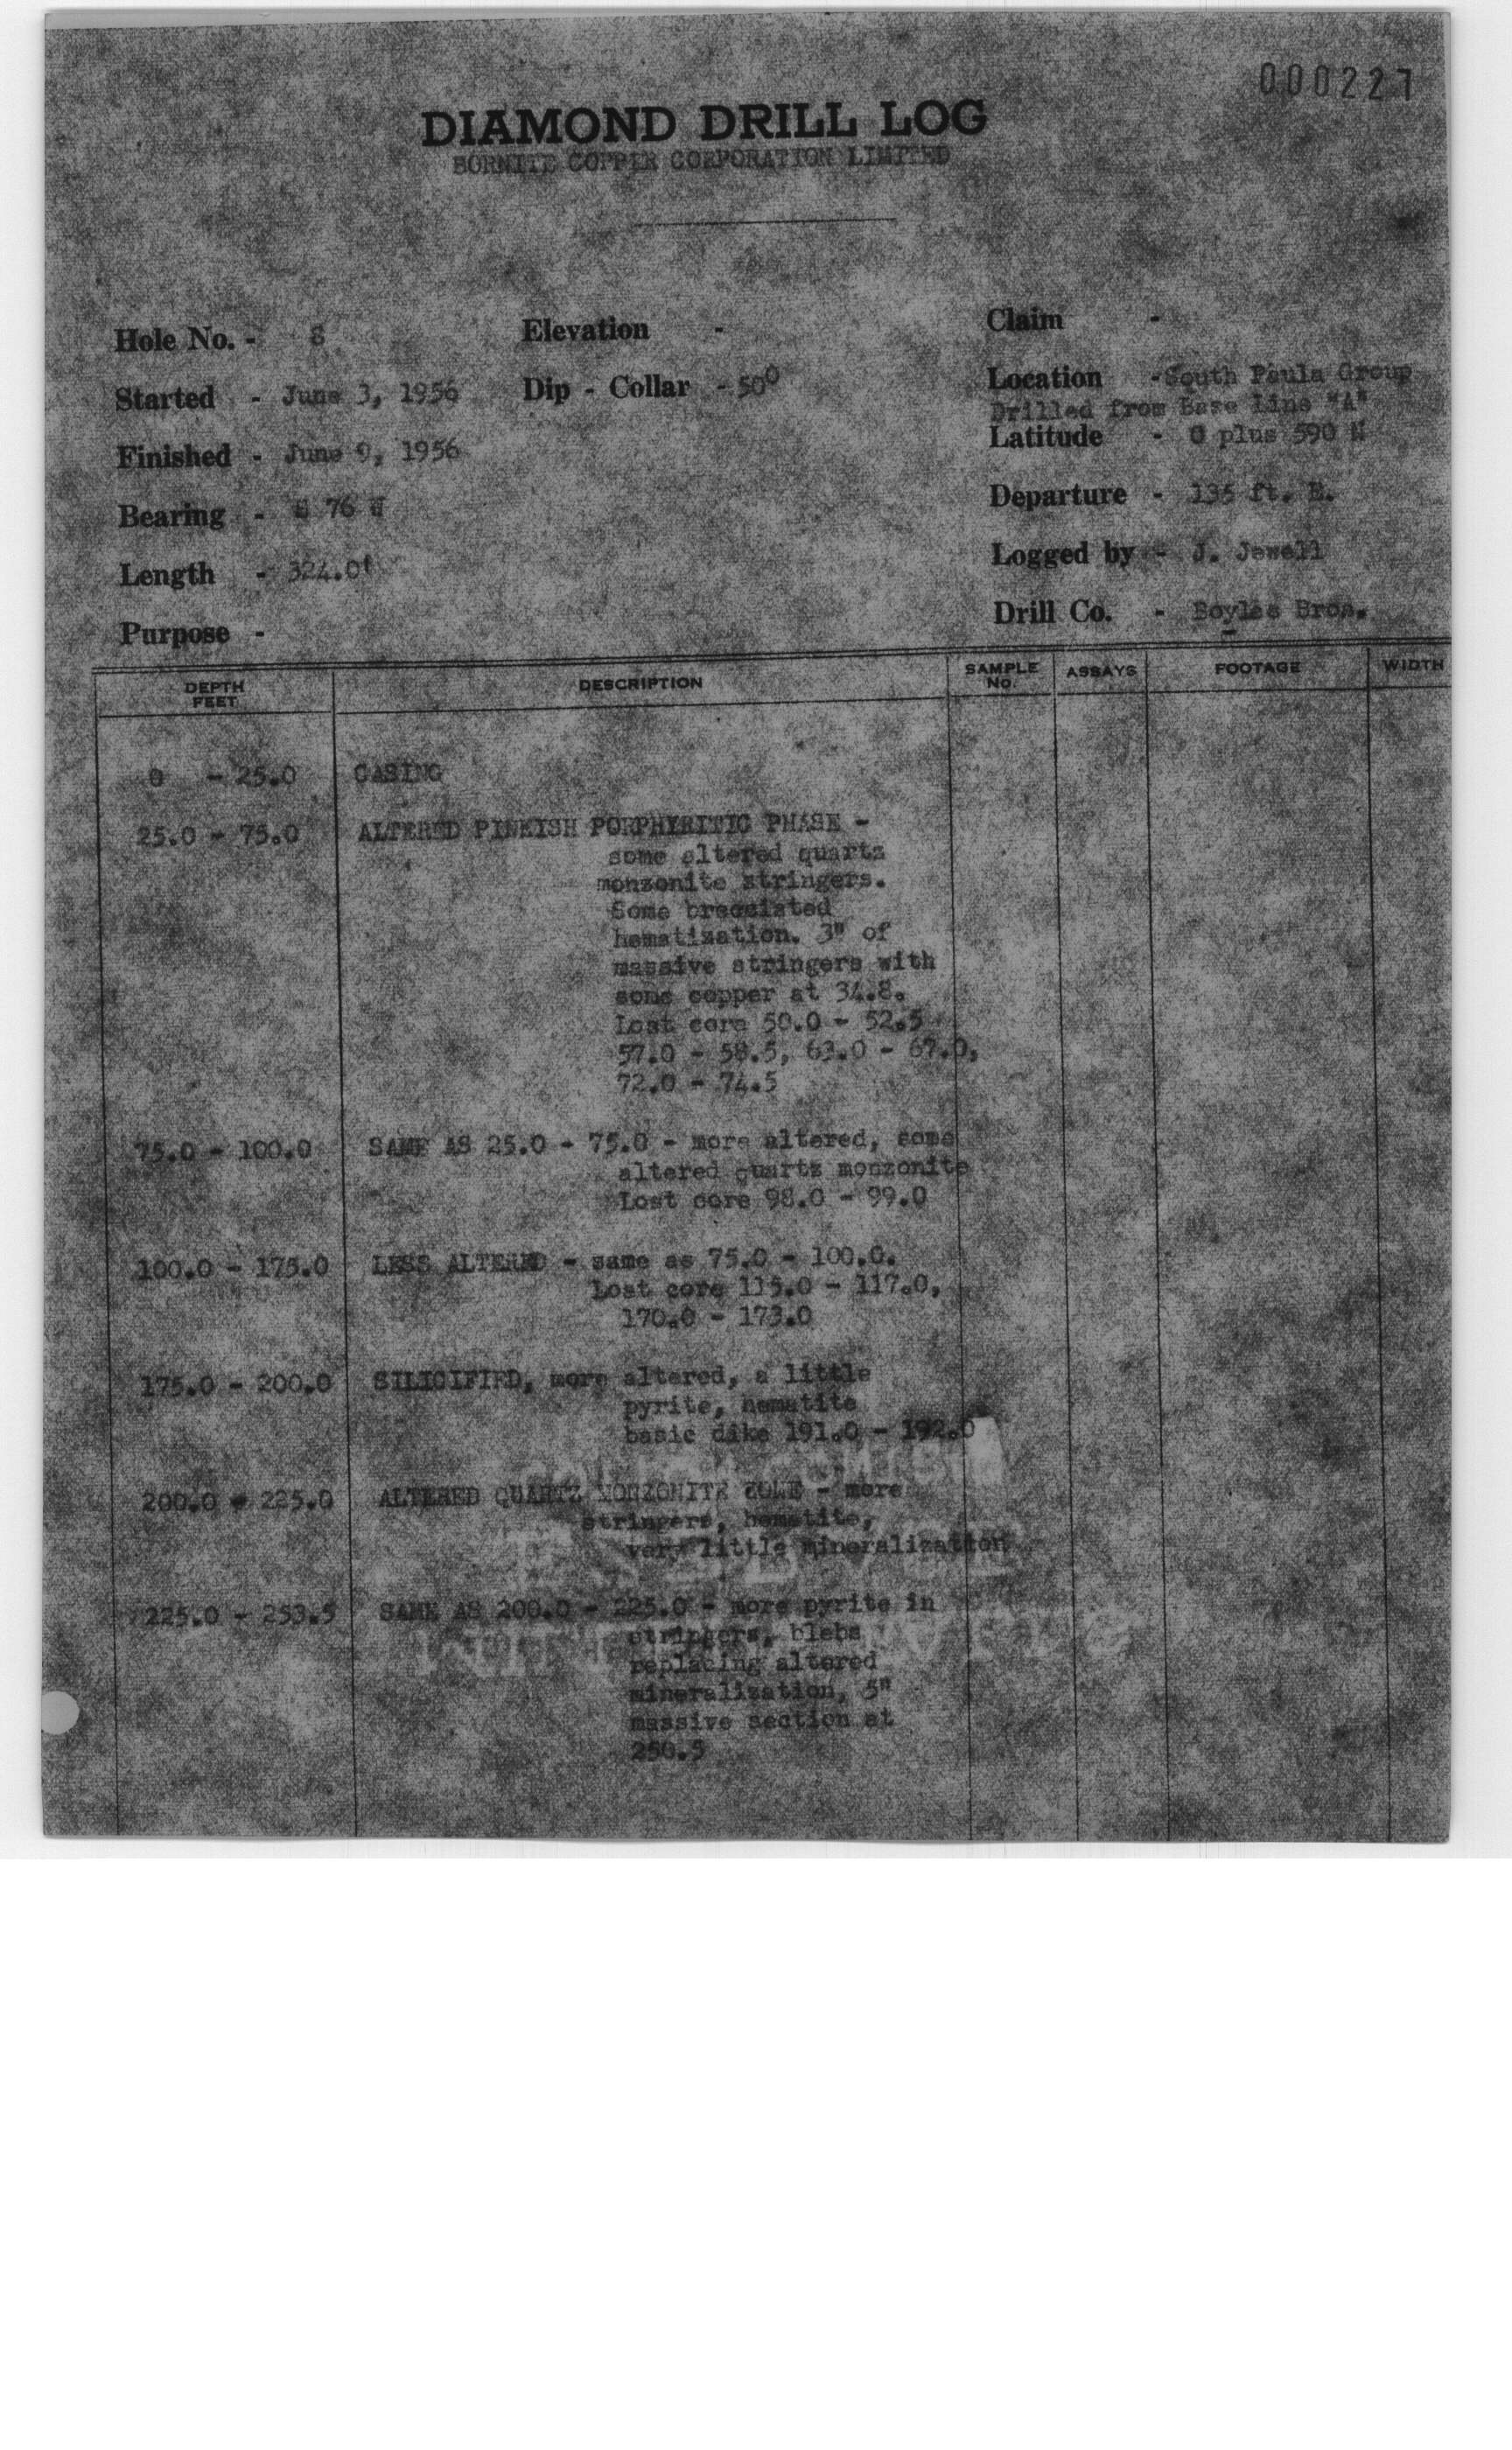 000227
DIAMOND DRILL LOG
BORNITE COPPER CORPORATION LIMITED
Hole No. - 8 Elevation - Claim -
Started - June 3, 1956 Dip - Collar - 50° Location - South Paula Group
Drilled from Base Line "A"
Finished - June 9, 1956 Latitude - 0 plus 590 N
Bearing - 76 Departure - 135 ft. E.
Length - 324.0' Logged by - J. Jewell
Purpose - Drill Co. - Boyles Bros.
DEPTH FEET DESCRIPTION SAMPLE No. ASSAYS FOOTAGE WIDTH
0 - 25.0 CASING
25.0 - 75.0 ALTERED PINKISH PORPHYRITIC PHASE -
some altered quartz
monzonite stringers.
Some brecciated
hematization. 3" of
massive stringers with
some copper at 34.8.
Lost core 50.0 - 52.5
57.0 - 58.5, 63.0 - 67.0,
72.0 - 74.5
75.0 - 100.0 SAME AS 25.0 - 75.0 - more altered, some
altered quartz monzonite
Lost core 98.0 - 99.0
100.0 - 175.0 LESS ALTERED - same as 75.0 - 100.0.
Lost core 115.0 - 117.0,
170.0 - 173.0
175.0 - 200.0 SILICIFIED, more altered, a little
pyrite, hematite
basic dike 191.0 - 192.0
200.0 - 225.0 ALTERED QUARTZ MONZONITE ZONE - more
stringers, hematite,
very little mineralization
225.0 - 253.5 SAME AS 200.0 - 225.0 - more pyrite in
stringers, blebs
replacing altered
mineralization, 5"
massive section at
250.5